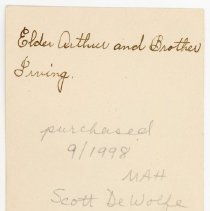 Elder Arthur and Brother
Irving.
purchased
9/1998
MAH
Scott DeWolfe